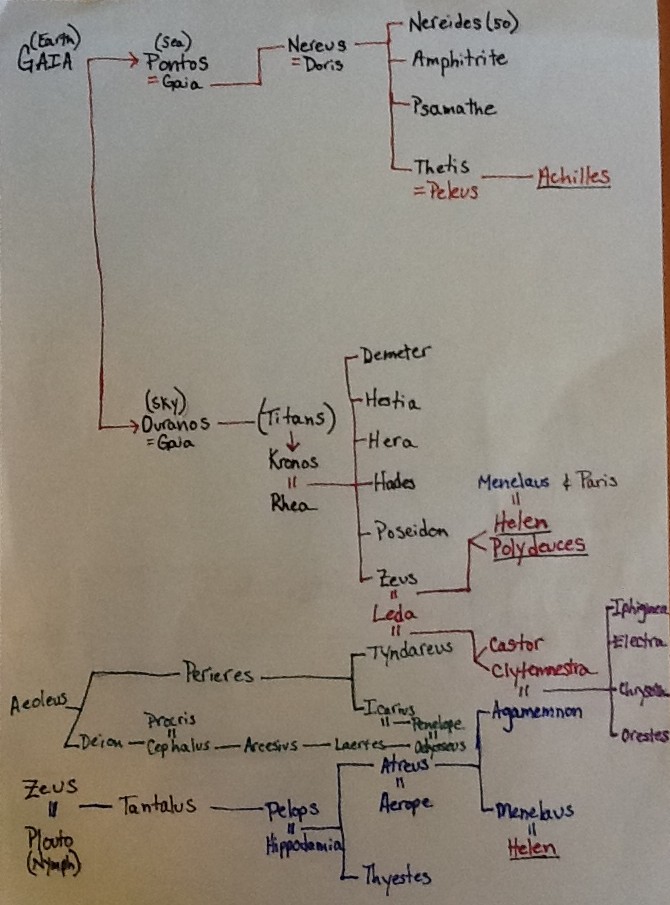 (Earth)
GAIA
(Sea)
Pontos
= Gaia
Nereus
= Doris
Nereides (50)
Amphitrite
Psamathe
Thetis
= Peleus
Achilles
(Sky)
Ouranos
= Gaia
(Titans)
Kronos
=
Rhea
Demeter
Hestia
Hera
Hades
Poseidon
Zeus
=
Leda
=
Menelaus & Paris
=
Helen
Polydeuces
Castor
Clytemnestra
=
Agamemnon
Iphiginea
Electra
Chryso
Orestes
Aeoleus
Perieres
Tyndareus
Icarius
=
Penelope
=
Deion
Procris
=
Cephalus
Arcesius
Laertes
Odysseus
Zeus
=
Plouto
(Nymph)
Tantalus
Pelops
=
Hippodamia
Atreus
=
Aerope
Thyestes
Menelaus
=
Helen